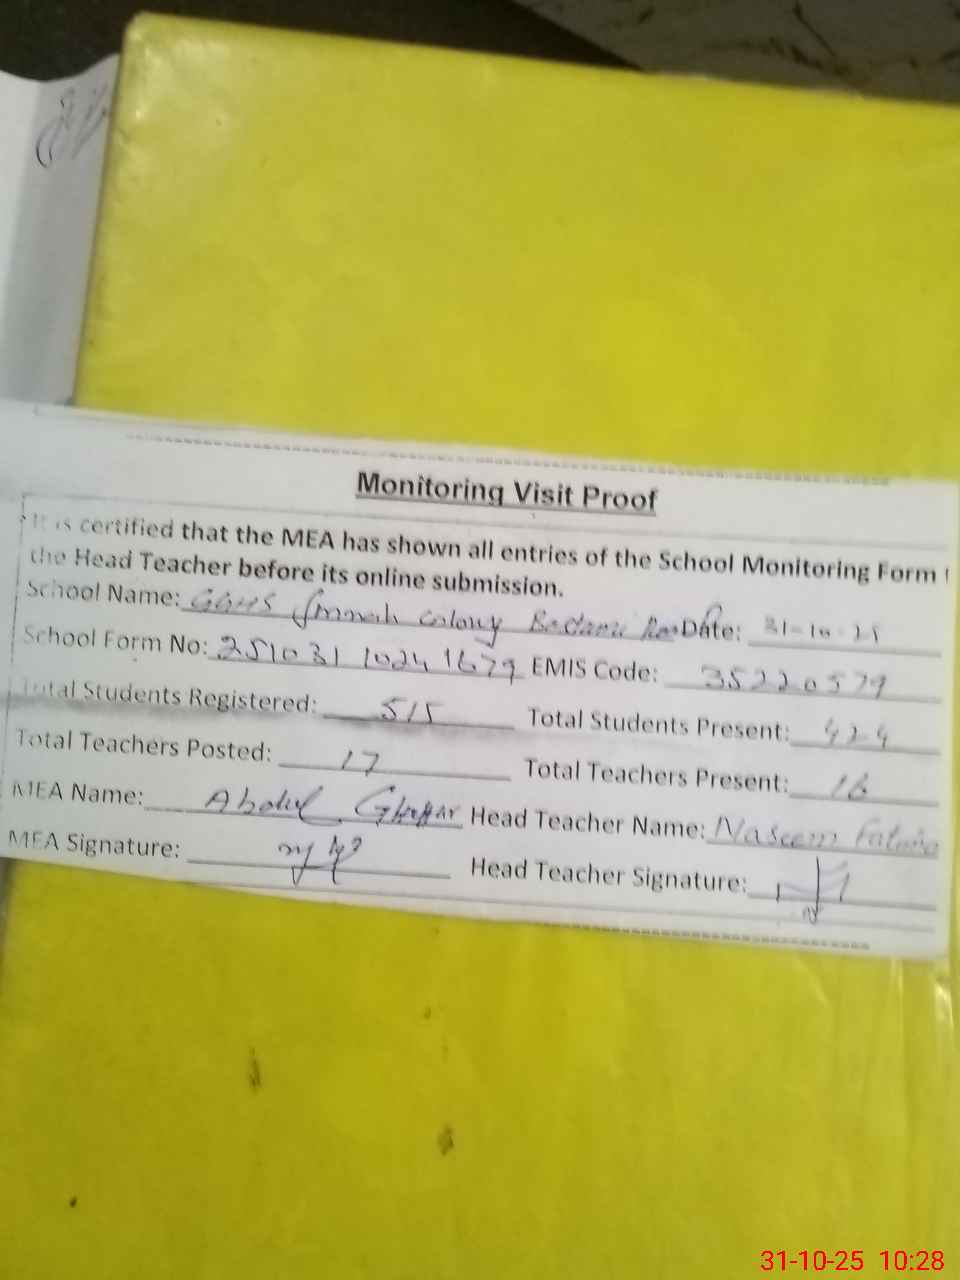 Monitoring Visit Proof
It is certified that the MEA has shown all entries of the School Monitoring Form t
the Head Teacher before its online submission.
School Name: GGHS Colony Badami Date: 31-10-25
School Form No: 251031 10241679 EMIS Code: 35220579
Total Students Registered: 515 Total Students Present: 424
Total Teachers Posted: 17 Total Teachers Present: 16
MEA Name: Abdul Ghaffar Head Teacher Name: Naseem Fatima
MEA Signature: Head Teacher Signature:
31-10-25 10:28